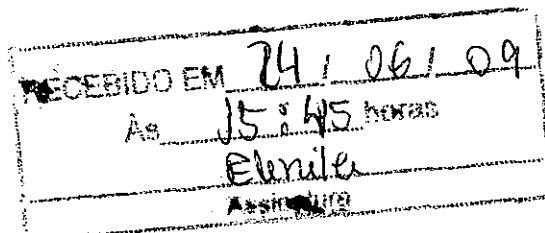 RECEBIDO EM 24 / 06 / 09
Às 15:45 horas
Assinatura